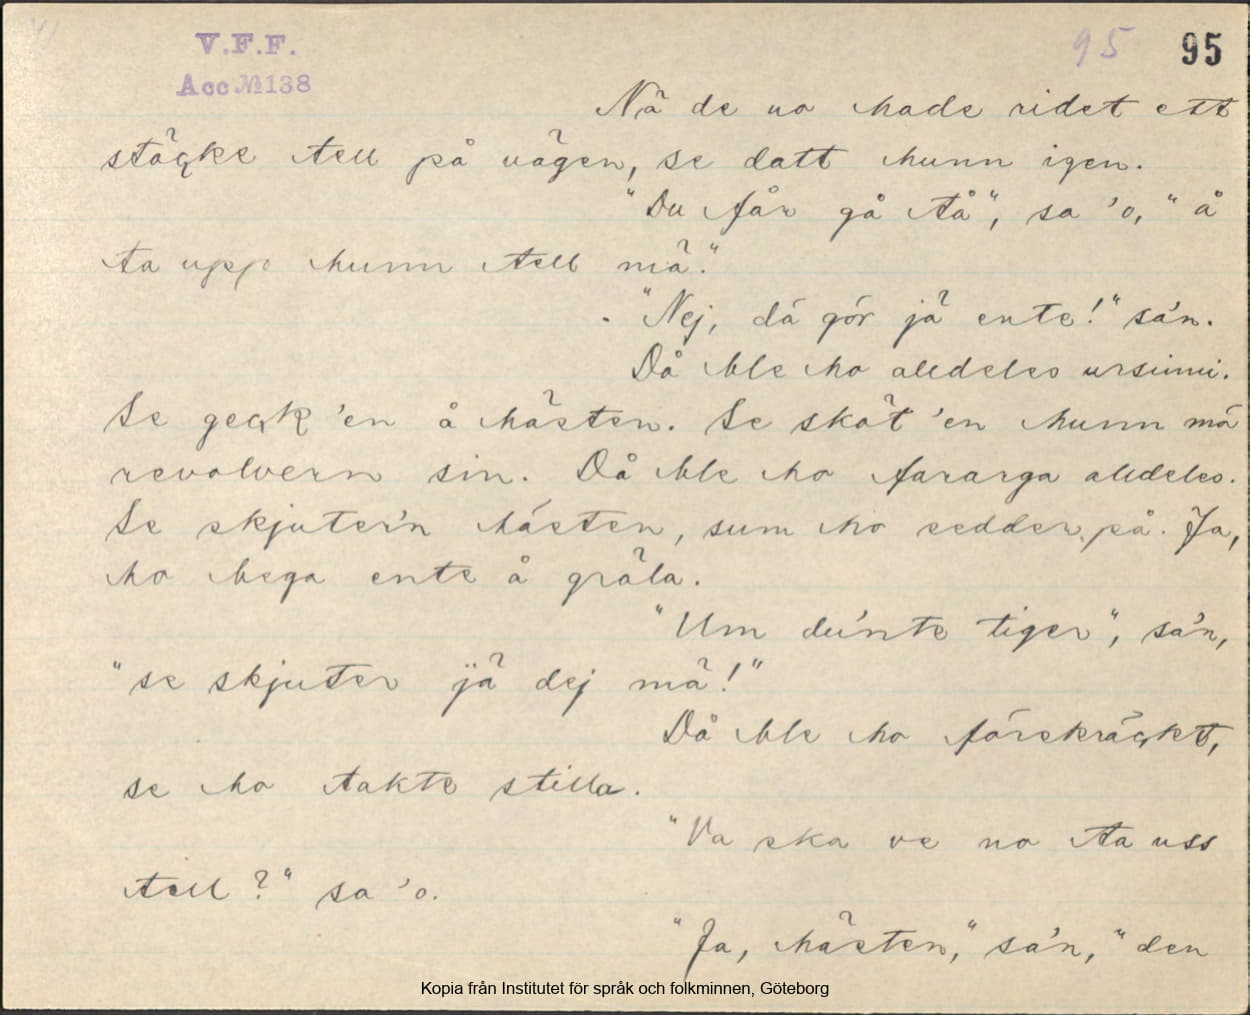 V.F.F.
Acc № 138
95 95
Nä de no hade ridet ett
stäcke tell på vägen, se datt hunn igen.
"Du får gå tå", sa 'o, "å
ta upp hunn tell mä."
"Nej, dá gör jä ente!" sá'n.
Då ble ho alldeles ursinni.
Se geck 'en å hästen. Se sköt 'en hunn má
revolvern sin. Då ble ho fararga alldeles.
Se skjuter'n hästen, sum ho sedder på. Ja,
ho bega ente å gräla.
"Um du'nte tiger", sá'n,
"se skjuter jä dej mä!"
Då ble ho förskräckt,
se ho takte stilla.
"Va ska ve no ta uss
tell?" sa 'o.
"Ja, hästen," sá'n, "den
Kopia från Institutet för språk och folkminnen, Göteborg